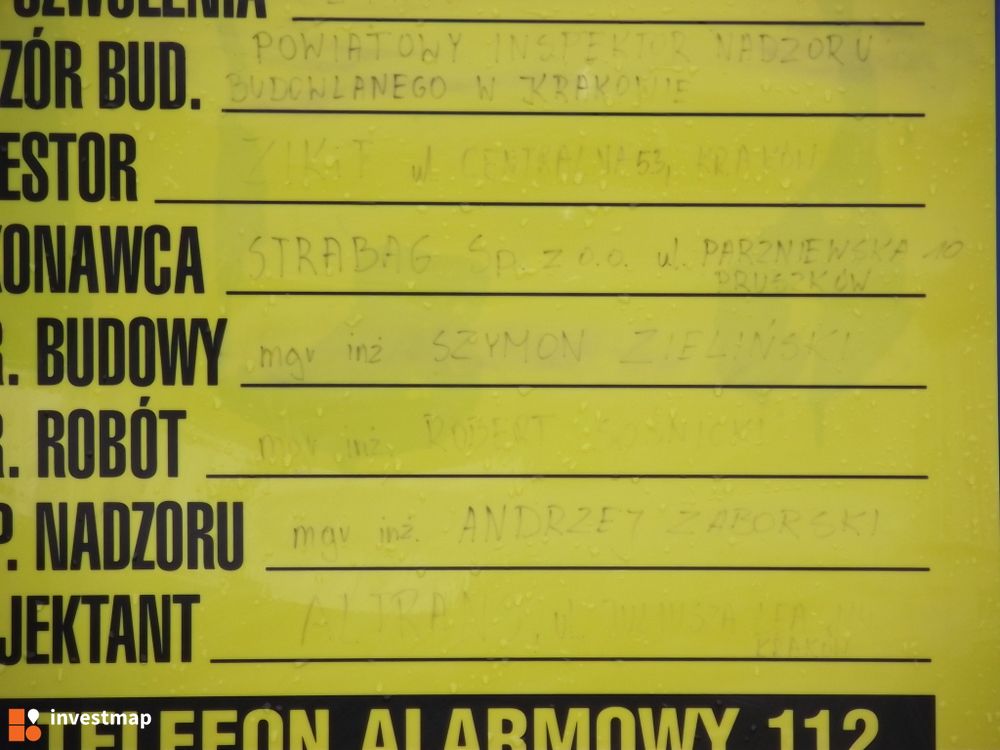 ZÓR BUD. POWIATOWY INSPEKTOR NADZORU
BUDOWLANEGO W KRAKOWIE
ESTOR ZIKiT ul. CENTRALNA 53, KRAKÓW
KONAWCA STRABAG Sp. z o.o. ul. PARZNIEWSKA 10
PRUSZKÓW
R. BUDOWY mgr inż SZYMON ZIELIŃSKI
R. ROBÓT mgr inż. ROBERT SOŚNICKI
P. NADZORU mgr inż. ANDRZEJ ZABORSKI
JEKTANT ALTRANS, ul. JULIUSZA LEA
KRAKÓW
TELEFON ALARMOWY 112
investmap